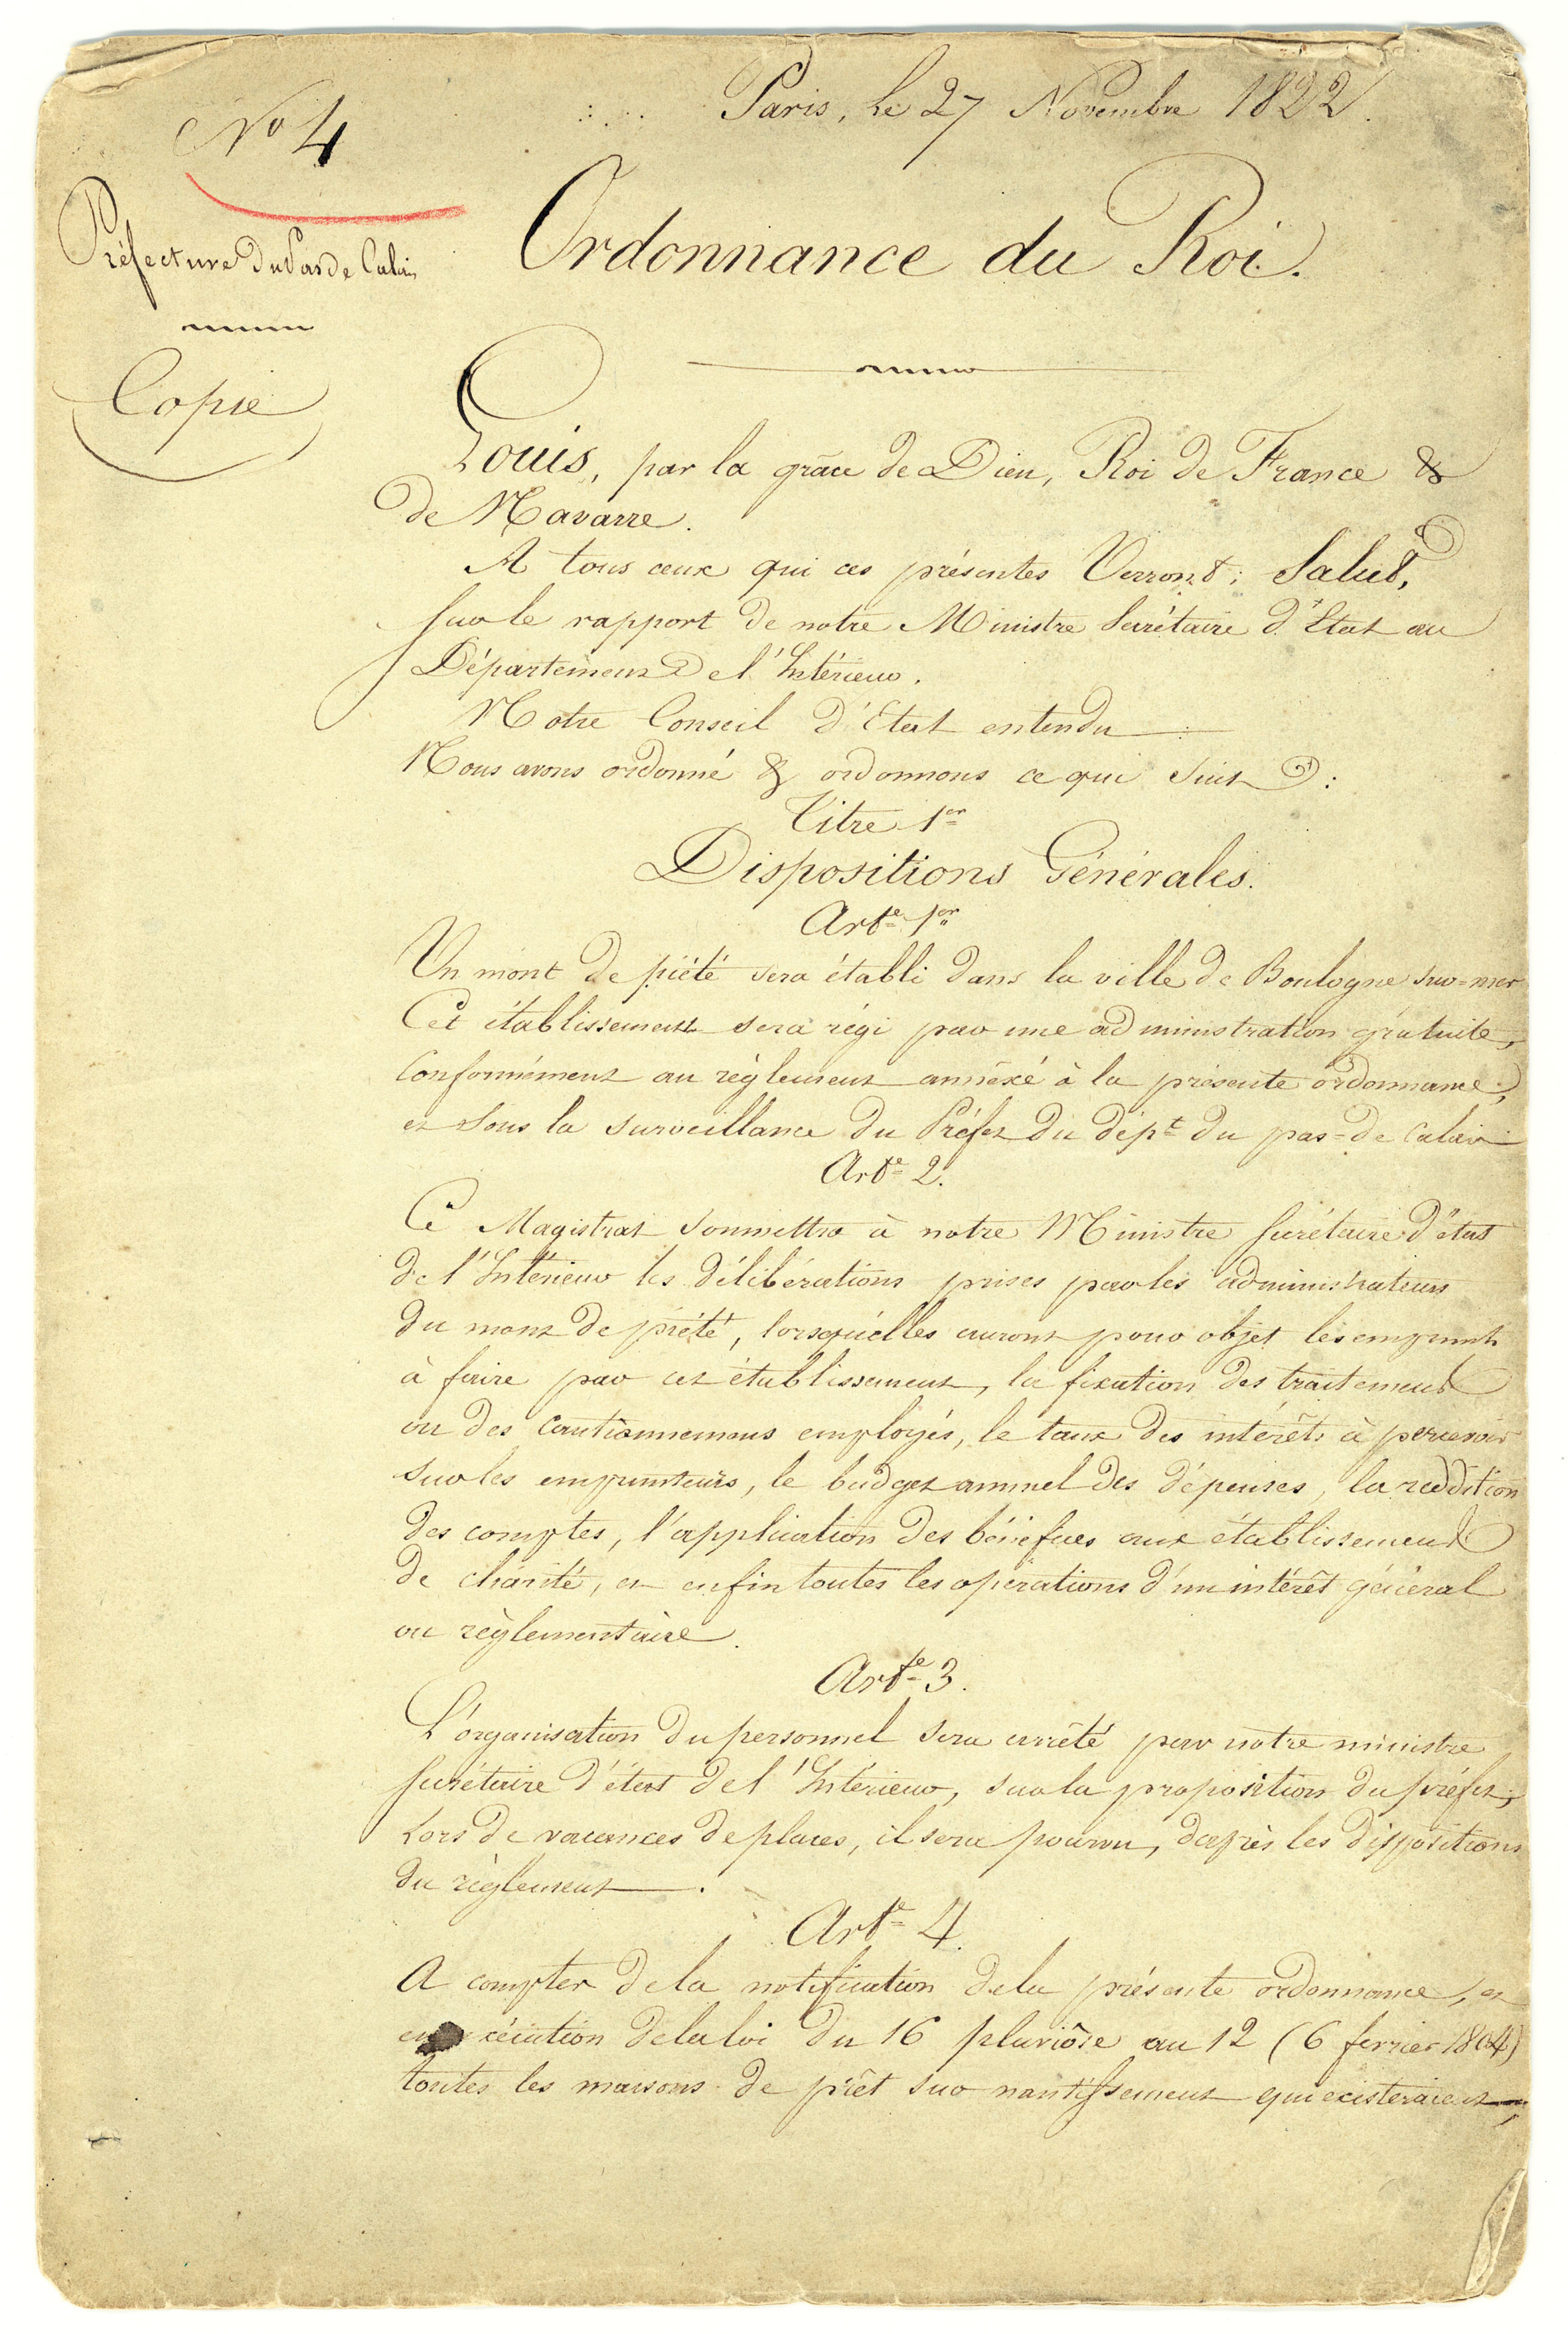 Paris, le 27 Novembre 1822.
No 4
Préfecture du Pas de Calais
Ordonnance du Roi.
Copie
Louis, par la grâce de Dieu, Roi de France &
de Navarre.
A tous ceux qui ces présentes Verront; Salut,
Sur le rapport de notre Ministre Secrétaire d'Etat au
Département de l'Intérieur.
Notre Conseil d'Etat entendu
Nous avons ordonné & ordonnons ce qui suit :
Titre 1er
Dispositions Générales.
Arte 1er
Un mont de piété sera établi dans la ville de Boulogne sur=mer
Cet établissement sera régi par une administration gratuite,
Conformément au règlement annéxé à la présente ordonnance,
et sous la surveillance du Préfet du dépt du pas=de Calais
Arte 2.
Ce Magistrat soumettra à notre Ministre Secrétaire d'état
de l'Intérieur les délibérations prises par les administrateurs
du mont de piété, lorsqu'elles auront pour objet les emprunts
à faire par cet établissement, la fixation des traitements
ou des cautionnemens employés, le taux des intérêts à percevoir
sur les emprunteurs, le budget annuel des dépenses, la reddition
des comptes, l'application des bénéfices aux établissements
de charité, et enfin toutes les opérations d'un intérêt général
ou règlementaire.
Arte 3.
L'organisation du personnel sera arrêté par notre ministre
Secrétaire d'état de l'Intérieur, sur la proposition du préfet;
Lors de vacances de places, il sera pourvu, d'après les dispositions
du règlement.
Arte 4.
A compter de la notification de la présente ordonnance, et
en xécution de la loi du 16 pluviôse an 12 (6 fevrier 1804)
toutes les maisons de prêt sur nantissement qui existeraient,